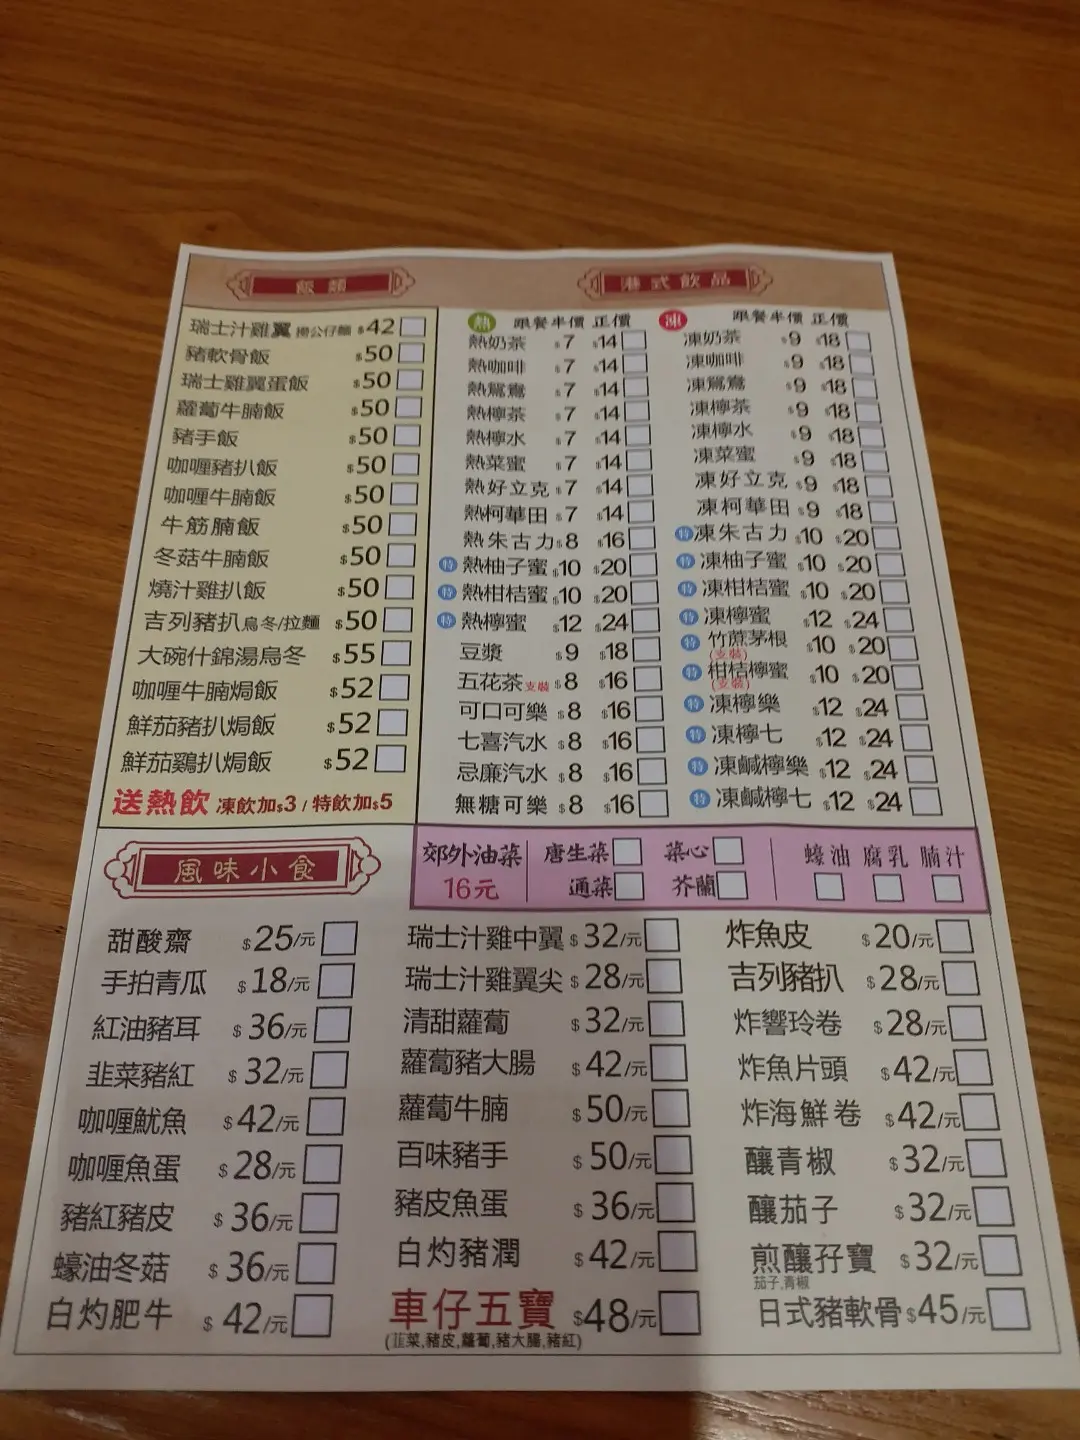 飯麵
瑞士汁雞翼 撈公仔麵 $42
豬軟骨飯 $50
瑞士雞翼蛋飯 $50
蘿蔔牛腩飯 $50
豬手飯 $50
咖喱豬扒飯 $50
咖喱牛腩飯 $50
牛筋腩飯 $50
冬菇牛腩飯 $50
燒汁雞扒飯 $50
吉列豬扒烏冬/拉麵 $50
大碗什錦湯烏冬 $55
咖喱牛腩焗飯 $52
鮮茄豬扒焗飯 $52
鮮茄鷄扒焗飯 $52
送熱飲 凍飲加$3 / 特飲加$5
港式飲品
熱 跟餐半價 正價
熱奶茶 $7 $14
熱咖啡 $7 $14
熱鴛鴦 $7 $14
熱檸茶 $7 $14
熱檸水 $7 $14
熱菜蜜 $7 $14
熱好立克 $7 $14
熱柯華田 $7 $14
熱朱古力 $8 $16
特 熱柚子蜜 $10 $20
特 熱柑桔蜜 $10 $20
特 熱檸蜜 $12 $24
豆漿 $9 $18
五花茶 支裝 $8 $16
可口可樂 $8 $16
七喜汽水 $8 $16
忌廉汽水 $8 $16
無糖可樂 $8 $16
凍 跟餐半價 正價
凍奶茶 $9 $18
凍咖啡 $9 $18
凍鴛鴦 $9 $18
凍檸茶 $9 $18
凍檸水 $9 $18
凍菜蜜 $9 $18
凍好立克 $9 $18
凍柯華田 $9 $18
特 凍朱古力 $10 $20
特 凍柚子蜜 $10 $20
特 凍柑桔蜜 $10 $20
特 凍檸蜜 $12 $24
特 竹蔗茅根 $10 $20
(支裝)
特 柑桔檸蜜 $10 $20
(支裝)
特 凍檸樂 $12 $24
特 凍檸七 $12 $24
特 凍鹹檸樂 $12 $24
特 凍鹹檸七 $12 $24
郊外油菜 唐生菜 菜心 蠔油 腐乳 腩汁
16元 通菜 芥蘭
風味小食
甜酸齋 $25/元
手拍青瓜 $18/元
紅油豬耳 $36/元
韭菜豬紅 $32/元
咖喱魷魚 $42/元
咖喱魚蛋 $28/元
豬紅豬皮 $36/元
蠔油冬菇 $36/元
白灼肥牛 $42/元
瑞士汁雞中翼 $32/元
瑞士汁雞翼尖 $28/元
清甜蘿蔔 $32/元
蘿蔔豬大腸 $42/元
蘿蔔牛腩 $50/元
百味豬手 $50/元
豬皮魚蛋 $36/元
白灼豬潤 $42/元
車仔五寶 $48/元
(韮菜,豬皮,蘿蔔,豬大腸,豬紅)
炸魚皮 $20/元
吉列豬扒 $28/元
炸響玲卷 $28/元
炸魚片頭 $42/元
炸海鮮卷 $42/元
釀青椒 $32/元
釀茄子 $32/元
煎釀孖寶 $32/元
茄子,青椒
日式豬軟骨 $45/元